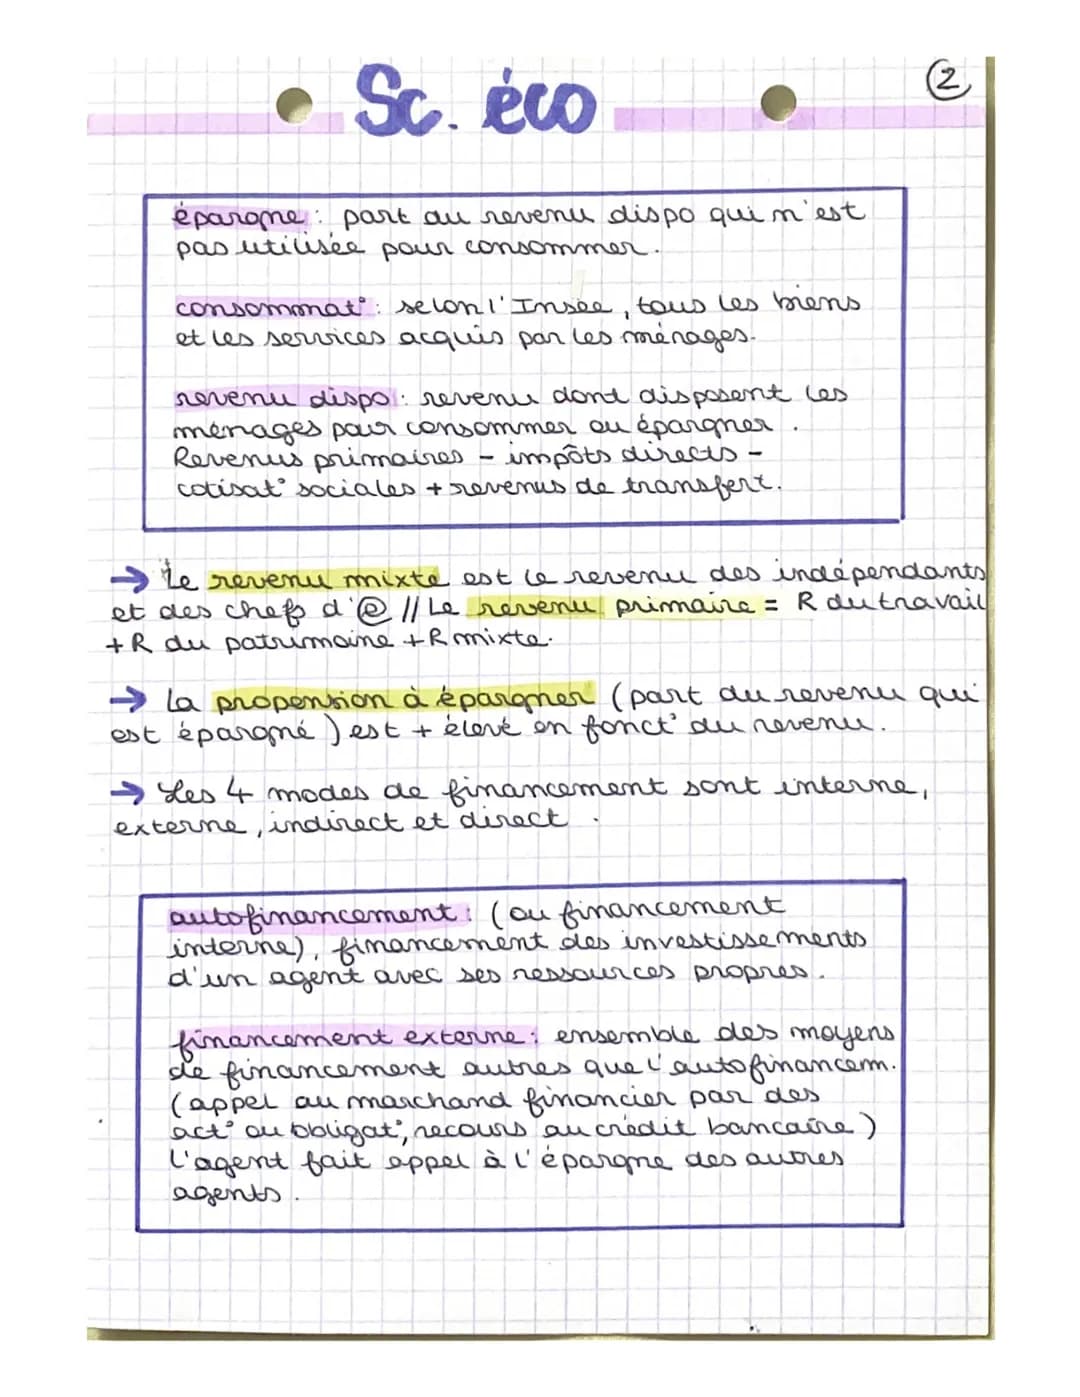 Sc. éco
②
épargne : part du revenu dispo qui n'est
pas utilisée pour consommer.
consommat° : selon l'Insée, tous les biens
et les services acquis par les ménages.
revenu dispo : revenu dont disposent les
ménages pour consommer ou épargner.
Revenus primaires - impôts directs -
cotisat° sociales + revenus de transfert.
→ Le revenu mixte est le revenu des indépendants
et des chefs d'@ // Le revenu primaire = R du travail
+ R du patrimoine + R mixte.
→ La propension à épargner (part du revenu qui
est épargné) est + élevé en fonct° du revenu.
→ Les 4 modes de financement sont interne,
externe, indirect et direct.
autofinancement : (ou financement
interne), financement des investissements
d'un agent avec ses ressources propres.
financement externe : ensemble des moyens
de financement autres que l'autofinancem.
(appel au marchand financier par des
act° ou obligat°, recours au crédit bancaire)
L'agent fait appel à l'épargne des autres
agents.